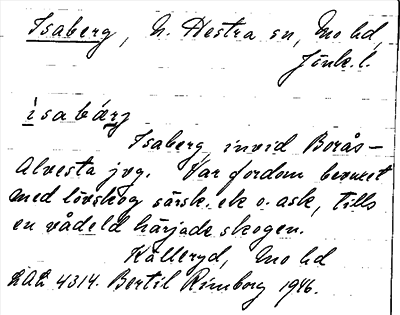 Isaberg, N. Hestra sn, Mo hd,
Jönk. l.
isabärg
Isaberg invid Borås-
Alvesta jvg. Var fordom bevuxet
med lövskog särsk. ek o. ask, tills
en vådeld härjade skogen.
Källeryd, Mo hd
LAL 4314. Bertil Rimborg 1946.